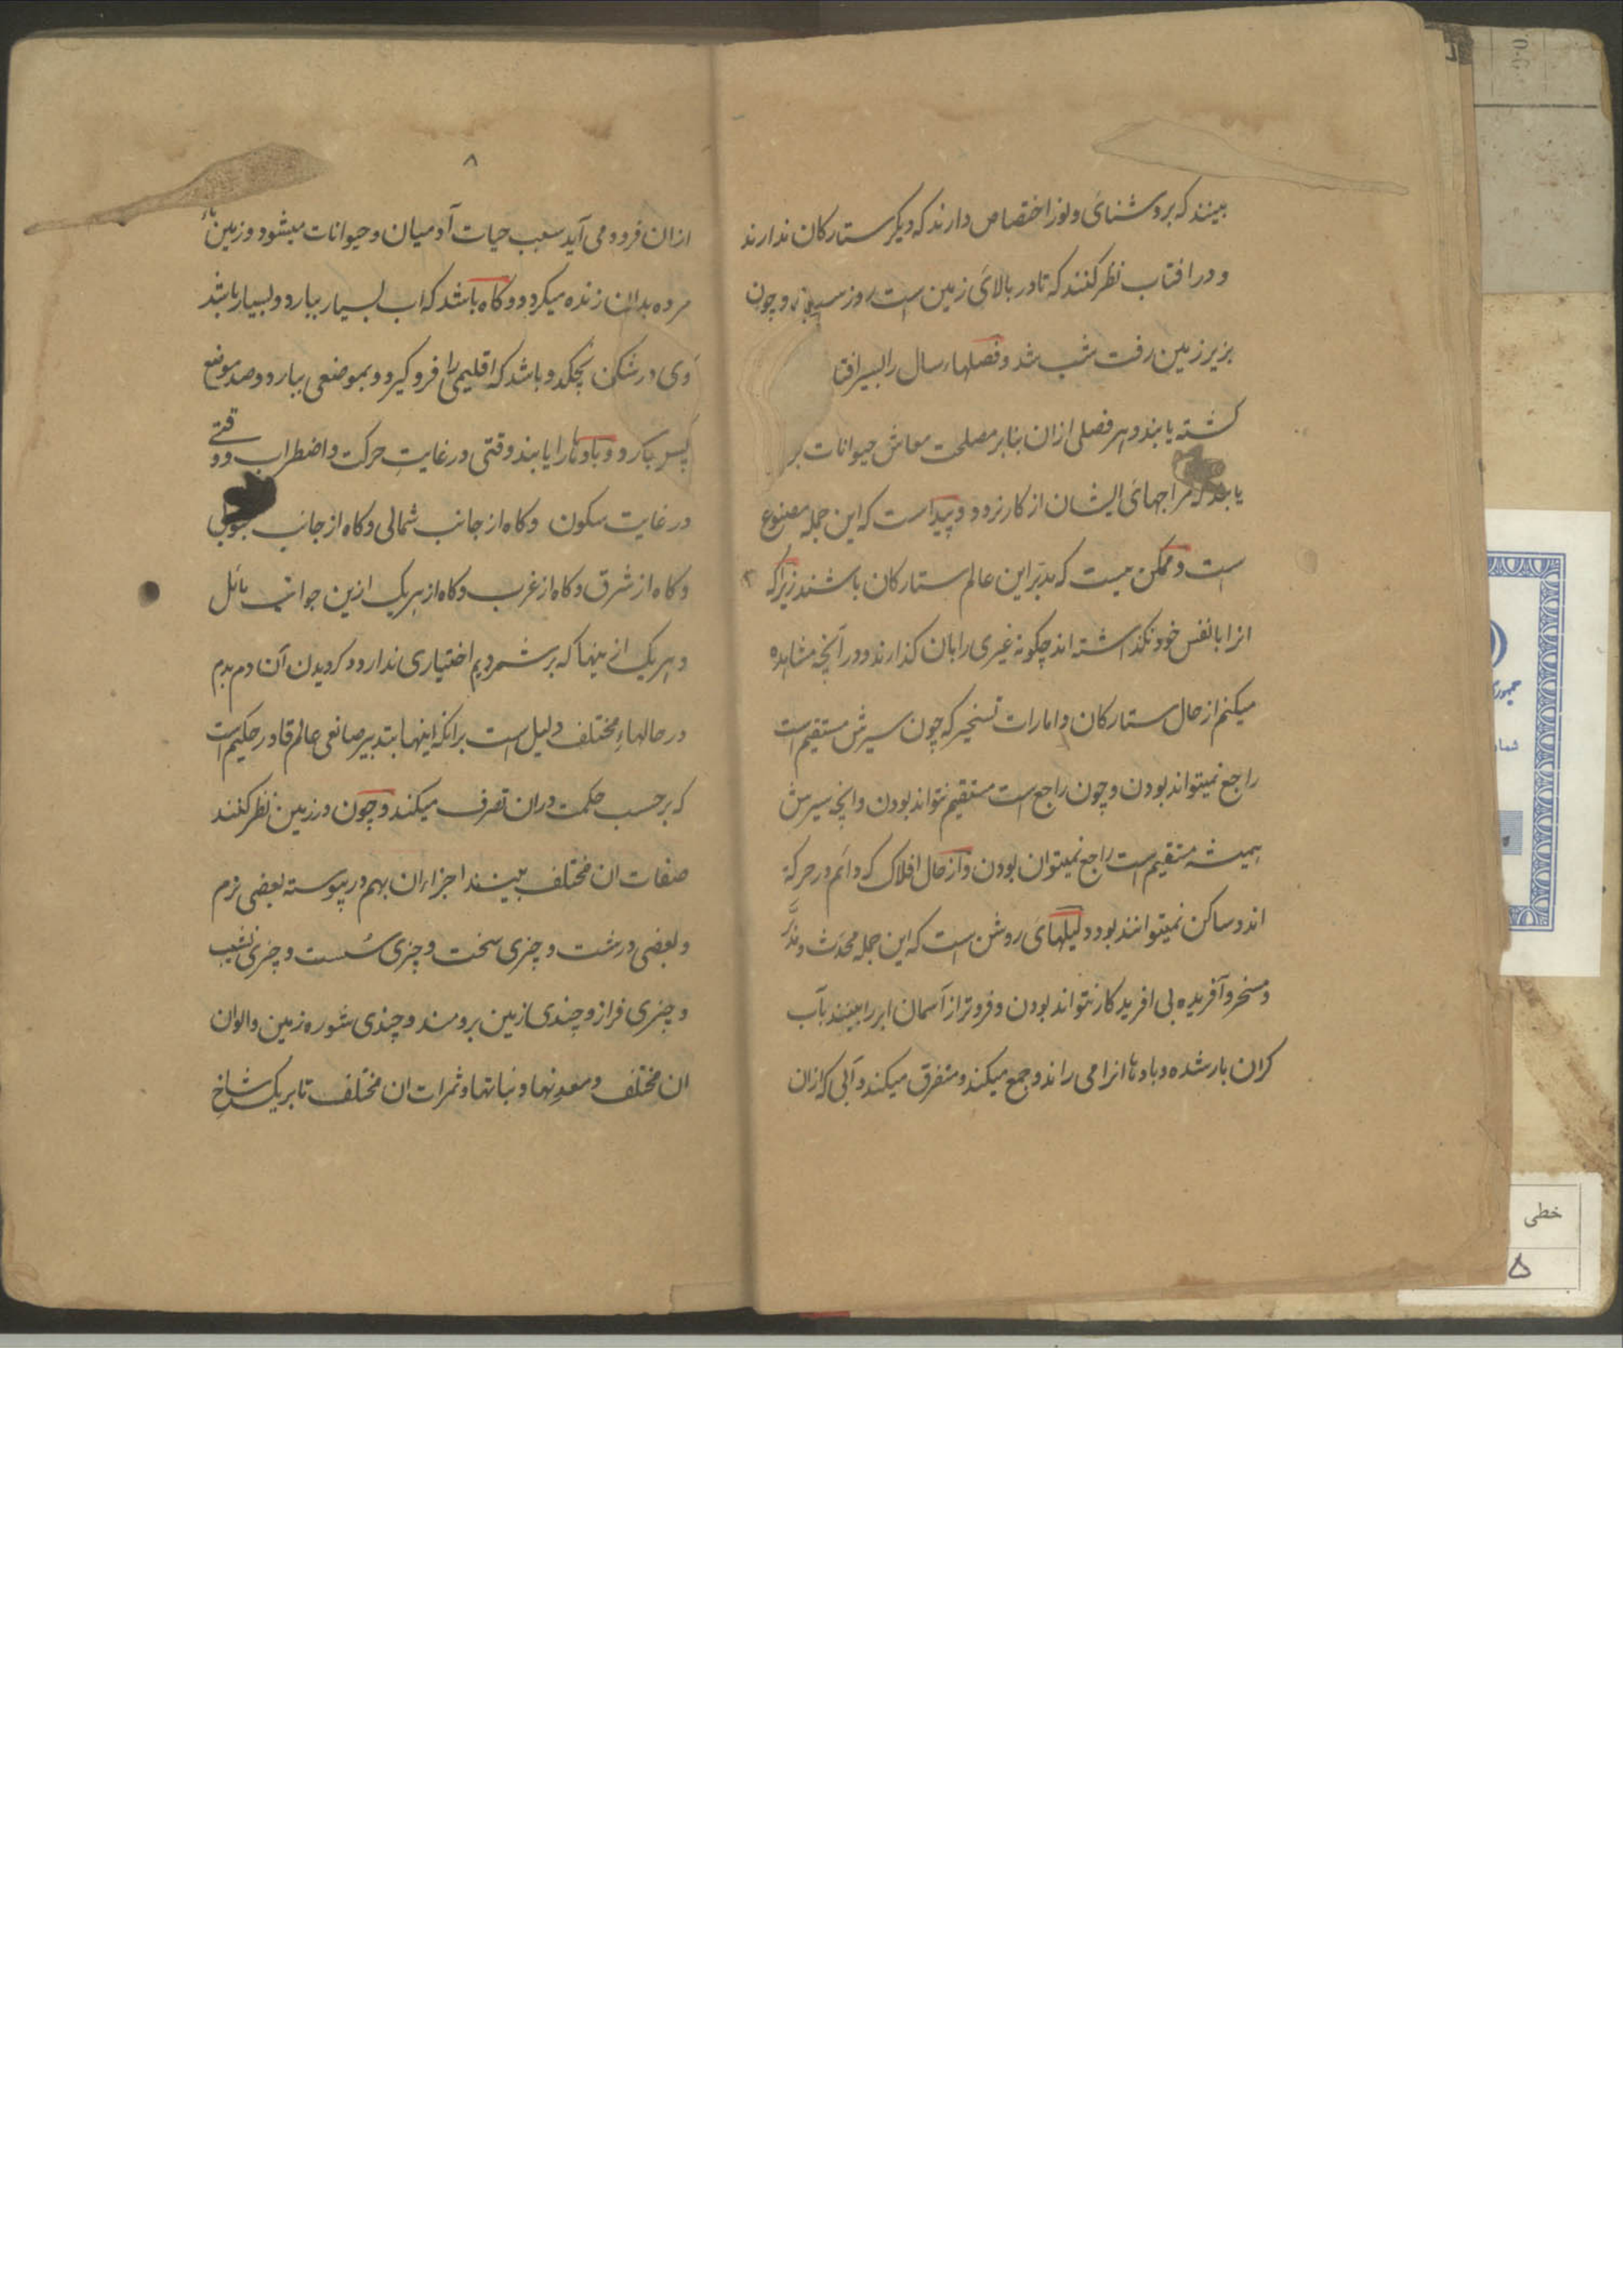 بینند که بروشنائی و نور اختصاص دارند که دیگر ستارکان ندارند
و در افتاب نظر کنند که تا در بالای زمین است روز و چون
بزیر زمین رفت شب شد و فصلهاء سال را بسیر افتا
کشته یابند و هر فصلی ازان بنابر مصلحت معاش حیوانات بر
یابند که مزاجهای ایشان از کار نرود و پیداست که این جمله مصنوع
است و ممکن نیست که مدبّر این عالم ستارکان باشند زیرا که
انرا با نفس خود نکذاشته اند چکونه غیری را بان کذارند و در آنچه مشاهده
میکنم از حال ستارکان و امارات تسخیر که چون سیرش مستقیم است
راجع نمیتواند بودن و چون راجع است مستقیم نتواند بودن و انچه سیرش
همیشه مستقیم است راجع نمیتوان بودن و از حال افلاک که دائم در حرکة
اند و ساکن نمیتوانند بود دلیلهای روشن است که این جمله محدَث
و مسخر و آفریده بی افریدکار نتواند بودن و فروتر از آسمان ابر را بینند بآب
کران بار شده و بادها انرا می راند و جمع میکند و متفرق میکند و آبی که ازان
۸
ازان فرود می آید سبب حیات آدمیان و حیوانات میشود و زمین
مرده بدان زنده میکردد و کاه باشد که اب بسیار ببارد و بسیار باشد
وی در شکن بچکد و باشد که اقلیمی را فرو کیرد و بموضعی ببارد و صد موضع
پس بارد و بادها را یابند وقتی در غایتِ حرکت و اضطراب و وقتے
در غایت سکون و کاه از جانب شمالی و کاه از جانب جنوبی
و کاه از شرق و کاه از غرب و کاه از هر یک ازین جوانب مائل
و هر یک ازینها که برشمردیم اختیاری ندارد و کردیدن آن دم بدم
در حالهاءِ مختلف دلیل است برانکه اینها بتدبیر صانعی عالم قادر حکیم است
که بر حسب حکمت دران تصرف میکند و چون در زمین نظر کنند
صفات ان مختلف بینند اجزاء ان بهم در پیوسته بعضی نرم
و بعضی درشت و چیزی سخت و چیزی سُست و چیزی نشیب
و چیزی فراز و چندی زمین برومند و چندی شوره زمین و الوان
ان مختلف و معدِنها و نباتها و ثمرات ان مختلف تا بر یک شاخِ
خطی
۵